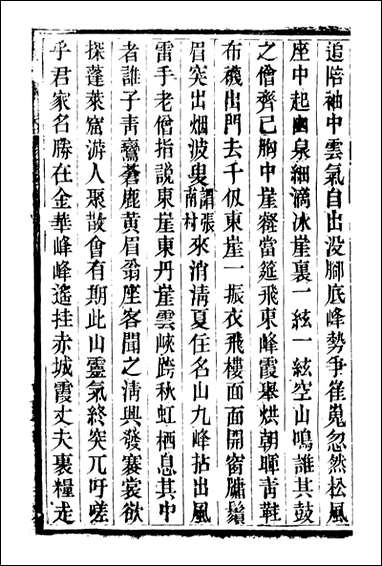 追陪袖中雲氣自出没腳底峰勢爭崔嵬忽然松風
座中起幽泉細滴冰崖裏一絃一絃空山鳴誰其鼓
之僧齊己胸中崖礙當筵飛東峰霞舉烘朝暉靑鞋
布襪出門去千仭東崖一振衣飛樓面面開窗牖鬚
眉突出烟波叟謂張南村來消淸夏住名山九峰拈出風
雷手老僧指説東崖東丹崖雲峽跨秋虹栖息其中
者誰子靑鸞蒼鹿黄眉翁座客聞之淸興發褰裳欲
探蓬萊窟游人聚散會有期此山靈氣終突兀吁嗟
乎君家名勝在金華峰峰遙挂赤城霞丈夫裹糧走